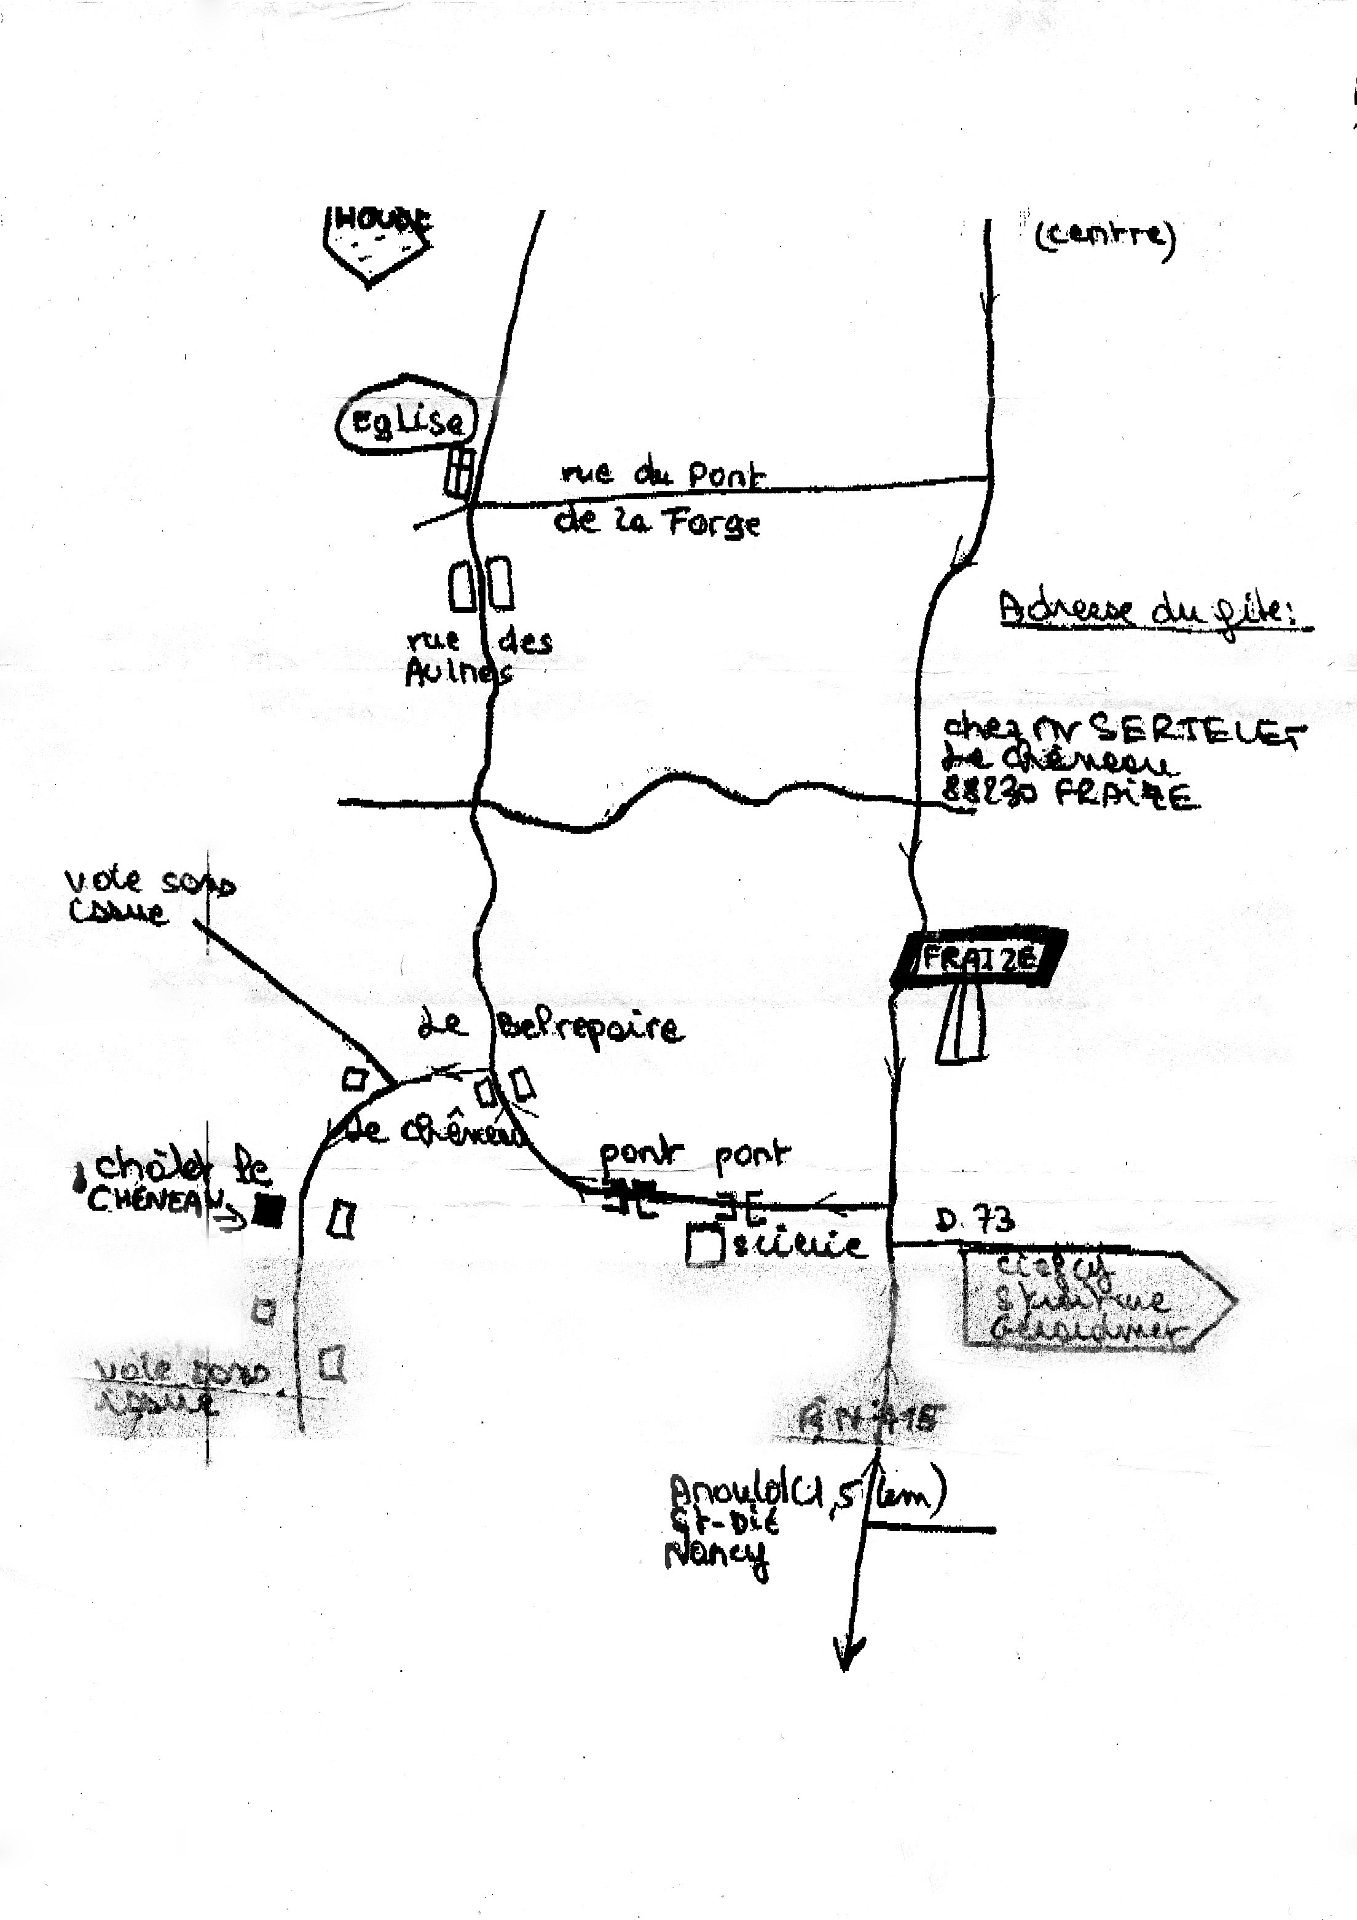 (centre)
Eglise
rue du Pont
de la Forge
Adresse du gîte:
rue des
Aulnes
chez Mr SERTELET
Le Chêneau
88230 FRAIZE
voie sans
issue
FRAIZE
Le Belrepaire
Le Chêneau
pont pont
châlet le
CHÊNEAU
D.73
scierie
Gérardmer
voie sans
issue
RN 415
Anould (1,5 km)
St-Dié
Nancy